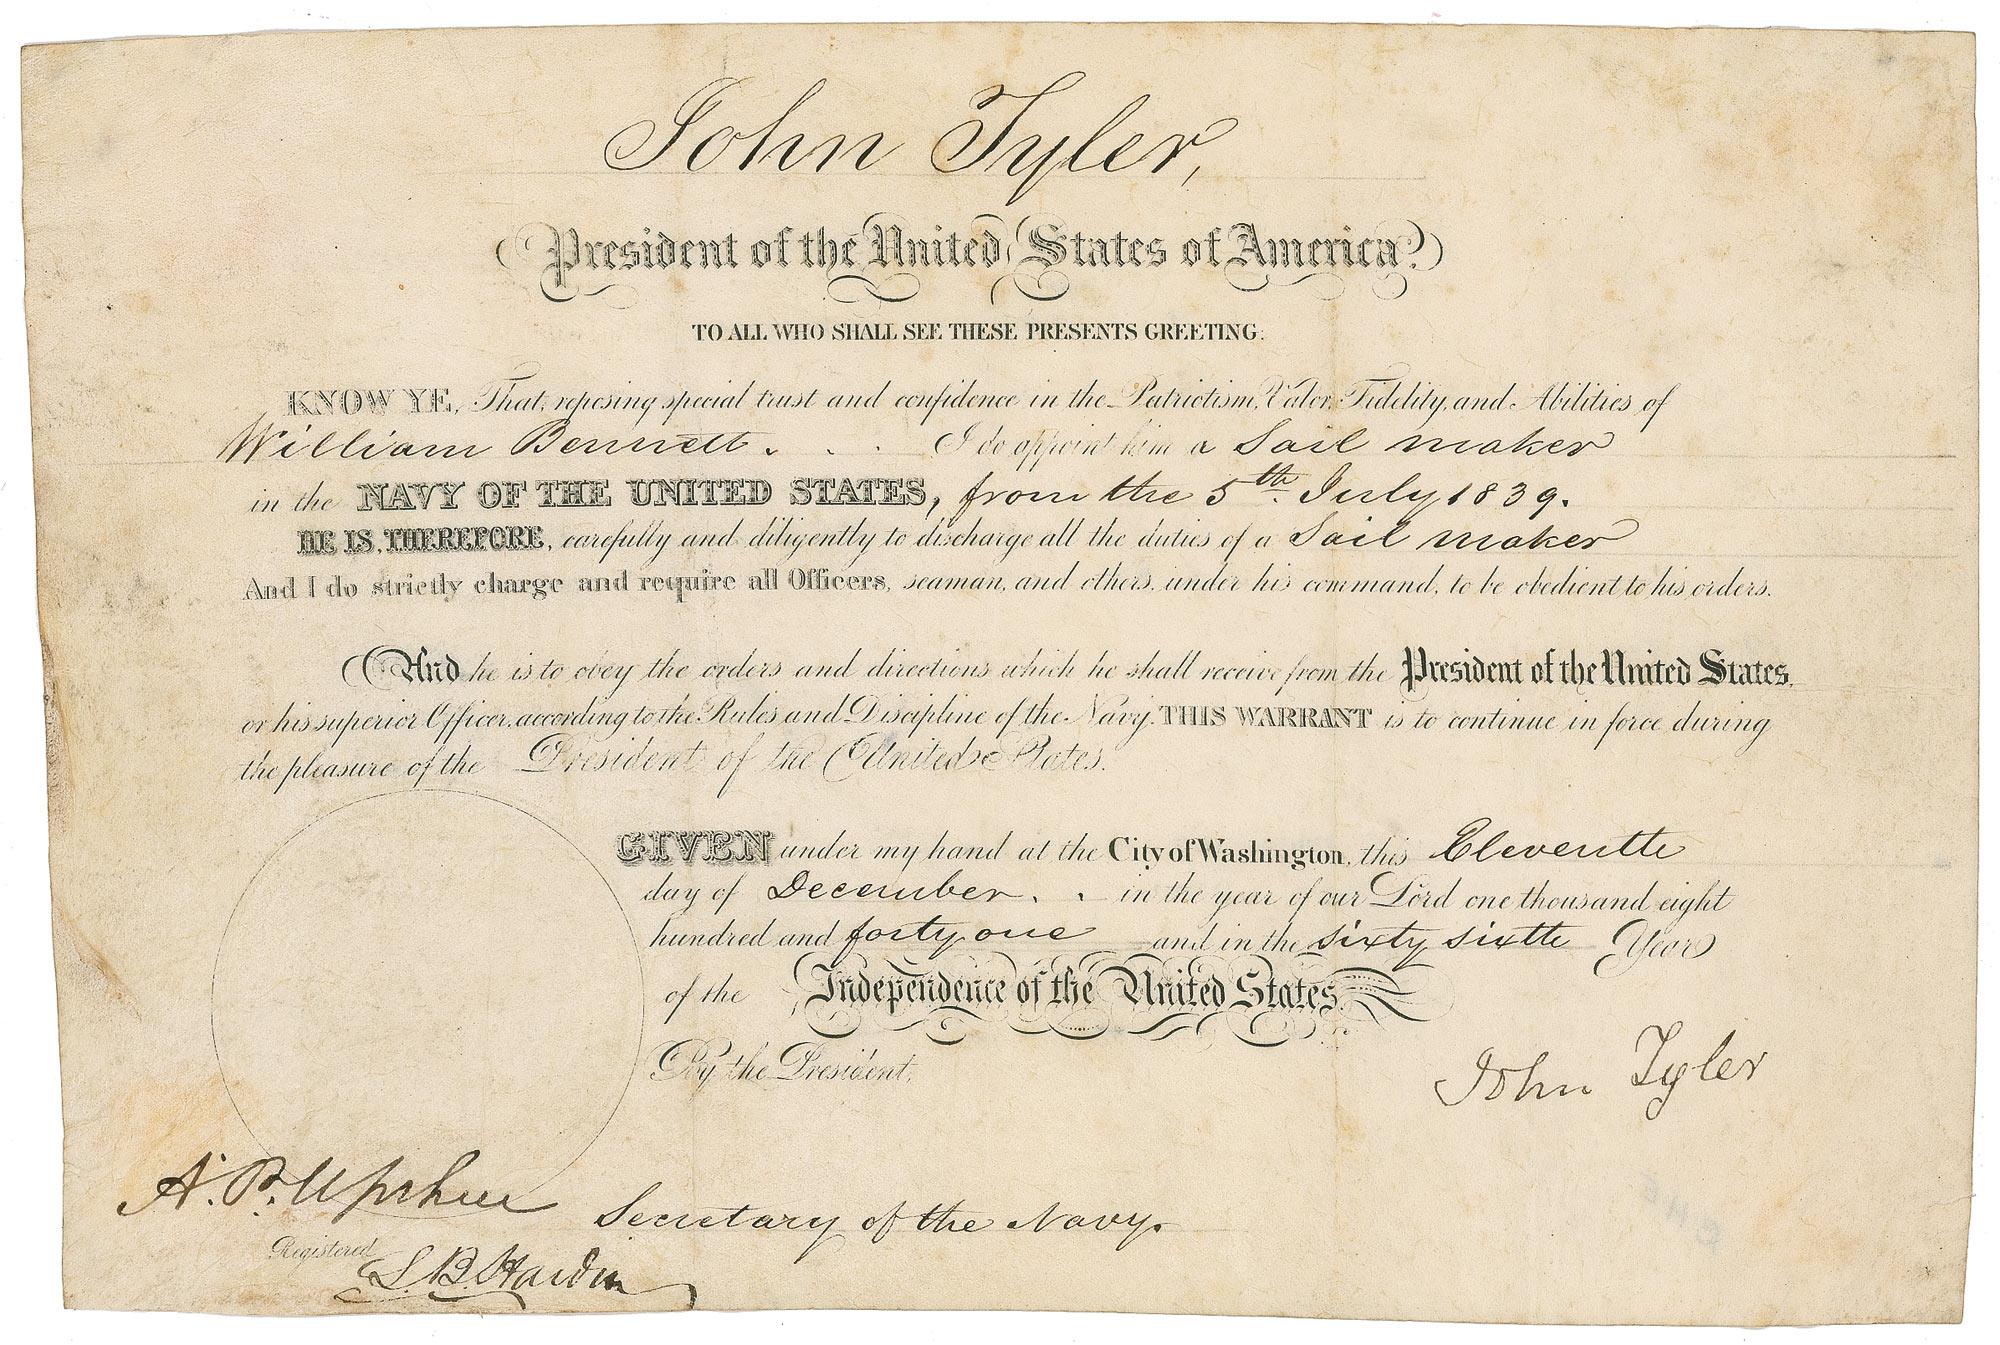 John Tyler,
President of the United States of America.
TO ALL WHO SHALL SEE THESE PRESENTS GREETING:
KNOW YE, That, reposing special trust and confidence in the Patriotism, Valor, Fidelity, and Abilities of
William Bennett. . . I do appoint him a Sail maker
in the NAVY OF THE UNITED STATES, from the 5th July 1839.
HE IS, THEREFORE, carefully and diligently to discharge all the duties of a Sail maker
And I do strictly charge and require all Officers, seaman, and others, under his command, to be obedient to his orders.
And he is to obey the orders and directions which he shall receive from the President of the United States,
or his superior Officer, according to the Rules and Discipline of the Navy. THIS WARRANT is to continue in force during
the pleasure of the President of the United States.
GIVEN under my hand at the City of Washington, this Eleventh
day of December. . in the year of our Lord one thousand eight
hundred and forty one and in the sixty sixth Year
of the Independence of the United States.
By the President,
John Tyler
A. P. Upshur
Secretary of the Navy.
Registered
L. B. Hardin